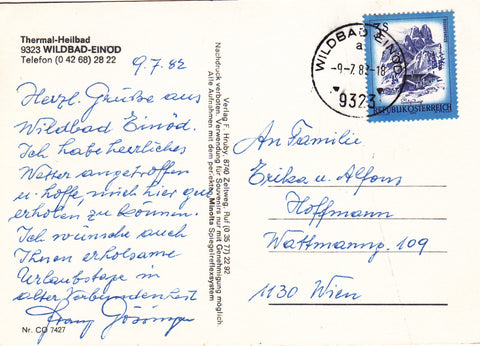 Thermal-Heilbad
9323 WILDBAD-EINÖD
Telefon (0 42 68) 28 22
9.7.82
Herzl. Grüße aus
Wildbad Einöd.
Ich habe herrliches
Wetter angetroffen
u. hoffe, mich hier gut
erholen zu können.
Ich wünsche auch
Ihnen erholsame
Urlaubstage in
alter Verbundenheit
Franz
Nr. CO 7427
Verlag F. Hruby, 8740 Zeltweg, Ruf (0 35 77) 22 92
Nachdruck verboten, Verwendung für Souvenirs nur mit Genehmigung möglich.
Alle Aufnahmen mit dem perfekten Minolta Spiegelreflexsystem
WILDBAD EINÖD
a
-9-7.82-18
9323
REPUBLIK ÖSTERREICH
An Familie
Erika u. Alfons
Hoffmann
Wattmanng. 109
1130 Wien